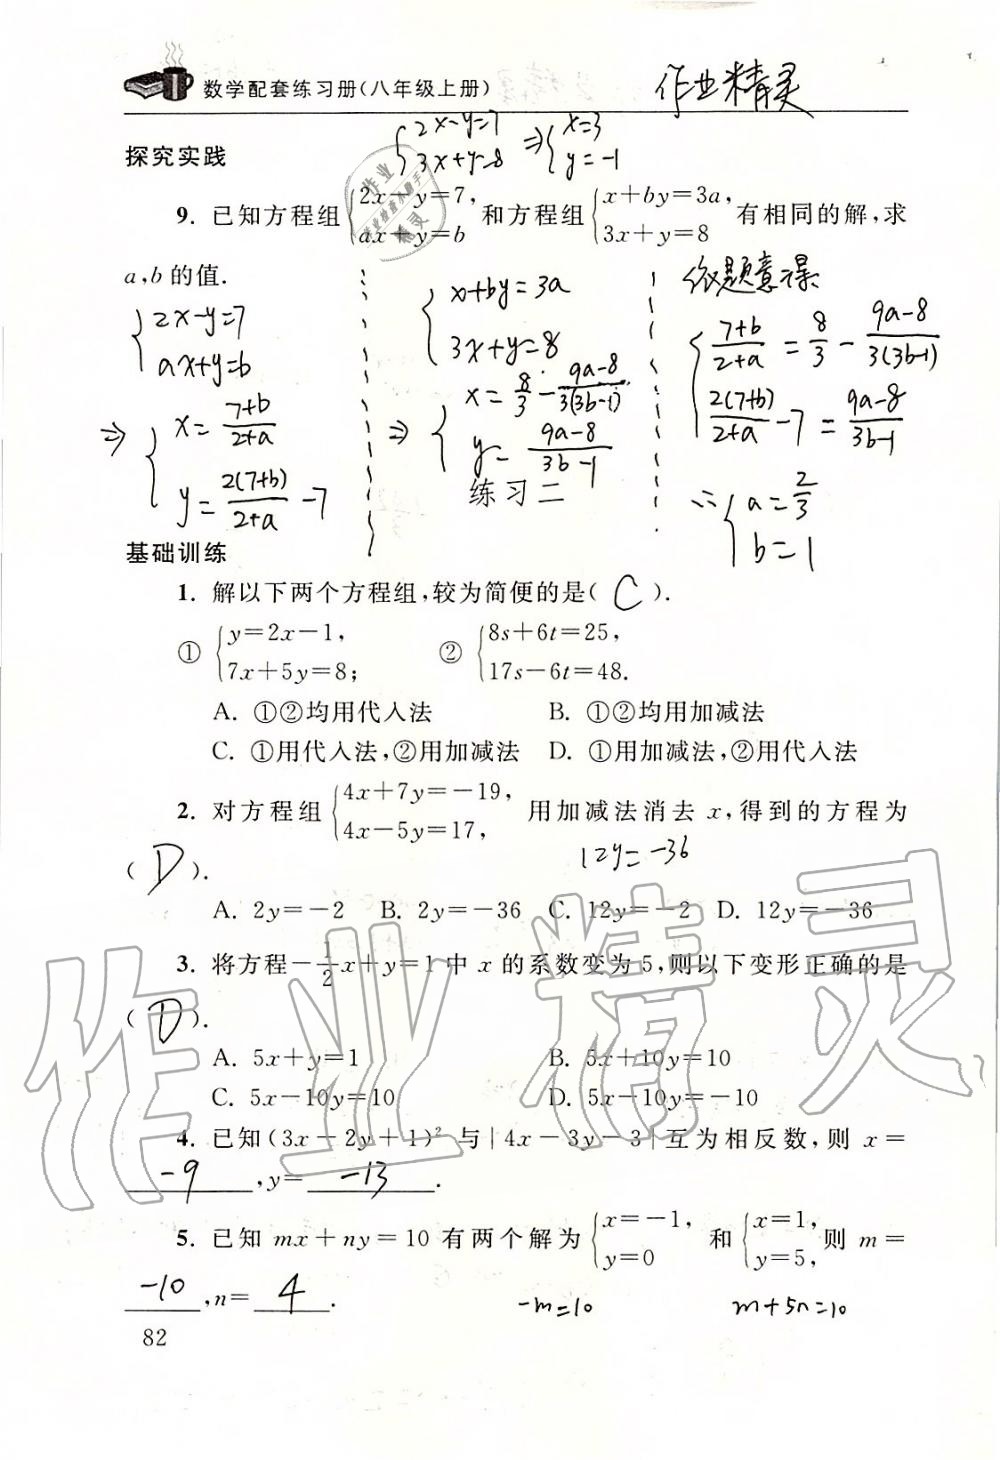 数学配套练习册(八年级上册)
作业精灵
{2x-y=7 ⇒ {x=3
3x+y=8 y=-1
探究实践
9. 已知方程组{2x-y=7, ax+y=b 和方程组{x+by=3a, 3x+y=8 有相同的解,求
a,b的值.
{2x-y=7
ax+y=b
⇒ {x=(7+b)/(2+a)
y=2(7+b)/(2+a)-7
{x+by=3a
3x+y=8
⇒ {x=8/3-(9a-8)/3(3b-1)
y=(9a-8)/(3b-1)
依题意得
{(7+b)/(2+a)=8/3-(9a-8)/3(3b-1)
2(7+b)/(2+a)-7=(9a-8)/(3b-1)
∴{a=2/3
b=1
练习二
基础训练
1. 解以下两个方程组,较为简便的是( C ).
① {y=2x-1, 7x+5y=8; ② {8s+6t=25, 17s-6t=48.
A. ①②均用代入法 B. ①②均用加减法
C. ①用代入法,②用加减法 D. ①用加减法,②用代入法
2. 对方程组{4x+7y=-19, 4x-5y=17, 用加减法消去 x,得到的方程为
12y=-36
( D ).
A. 2y=-2 B. 2y=-36 C. 12y=-2 D. 12y=-36
3. 将方程-1/2x+y=1中 x 的系数变为5,则以下变形正确的是
( D ).
A. 5x+y=1 B. 5x+10y=10
C. 5x-10y=10 D. 5x-10y=-10
4. 已知(3x-2y+1)²与|4x-3y-3|互为相反数,则 x=
-9 ,y= -13 .
5. 已知 mx+ny=10 有两个解为{x=-1, y=0 和{x=1, y=5, 则 m=
-10 ,n= 4 .
-m=10 m+5n=10
82
作业精灵